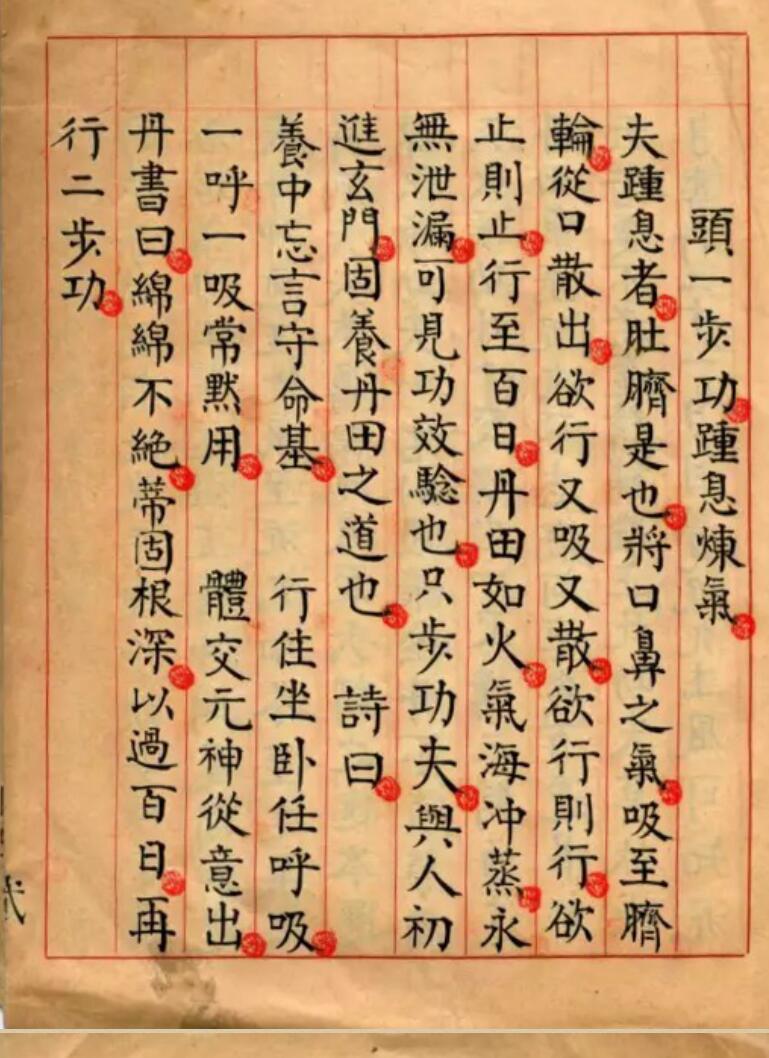 頭一步功踵息煉氣
夫踵息者肚臍是也將口鼻之氣吸至臍
輪從口散出欲行又吸又散欲行則行欲
止則止行至百日丹田如火氣海冲蒸永
無泄漏可見功效騐也只步功夫與人初
進玄門固養丹田之道也 詩曰
養中忘言守命基 行住坐卧任呼吸
一呼一吸常默用 體交元神從意出
丹書曰綿綿不絶蒂固根深以過百日再
行二步功